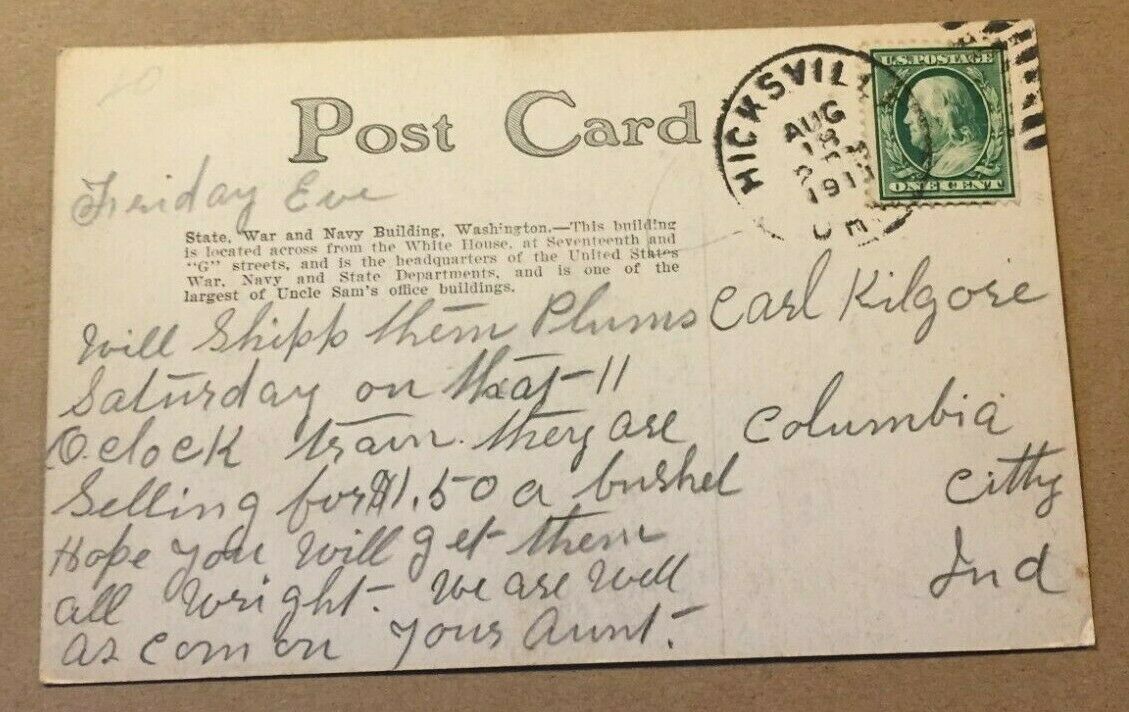 Post Card
HICKSVILL
AUG
18
191
U.S. POSTAGE
ONE CENT
Friday Eve
State, War and Navy Building, Washington.—This building
is located across from the White House, at Seventeenth and
"G" streets, and is the headquarters of the United States
War, Navy and State Departments, and is one of the
largest of Uncle Sam's office buildings.
Will Shipp them Plums
Saturday on that 11
O.clock train. they are
Selling for $1.50 a bushel
Hope you will get them
all Wright. We are Well
as comon yours Aunt.
Carl Kilgore
Columbia
Citty
Ind